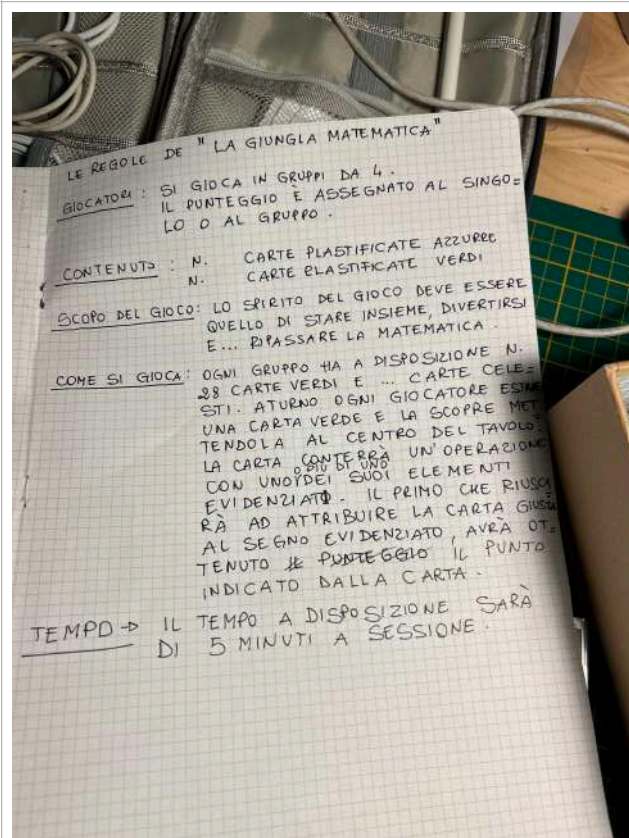 LE REGOLE DE "LA GIUNGLA MATEMATICA"
GIOCATORI : SI GIOCA IN GRUPPI DA 4.
IL PUNTEGGIO È ASSEGNATO AL SINGO=
LO O AL GRUPPO.
CONTENUTO : N. CARTE PLASTIFICATE AZZURRE
N. CARTE PLASTIFICATE VERDI
SCOPO DEL GIOCO: LO SPIRITO DEL GIOCO DEVE ESSERE
QUELLO DI STARE INSIEME, DIVERTIRSI
E... RIPASSARE LA MATEMATICA.
COME SI GIOCA: OGNI GRUPPO HA A DISPOSIZIONE N.
28 CARTE VERDI E ... CARTE CELE=
STI. A TURNO OGNI GIOCATORE ESTRAE
UNA CARTA VERDE E LA SCOPRE MET
TENDOLA AL CENTRO DEL TAVOLO.
LA CARTA CONTERRÀ UN'OPERAZIONE
CON UNO O PIÙ DI UNO DEI SUOI ELEMENTI
EVIDENZIATI. IL PRIMO CHE RIUSCI
RÀ AD ATTRIBUIRE LA CARTA GIUSTA
AL SEGNO EVIDENZIATO, AVRÀ OT=
TENUTO IL PUNTEGGIO IL PUNTO
INDICATO DALLA CARTA.
TEMPO → IL TEMPO A DISPOSIZIONE SARÀ
DI 5 MINUTI A SESSIONE.